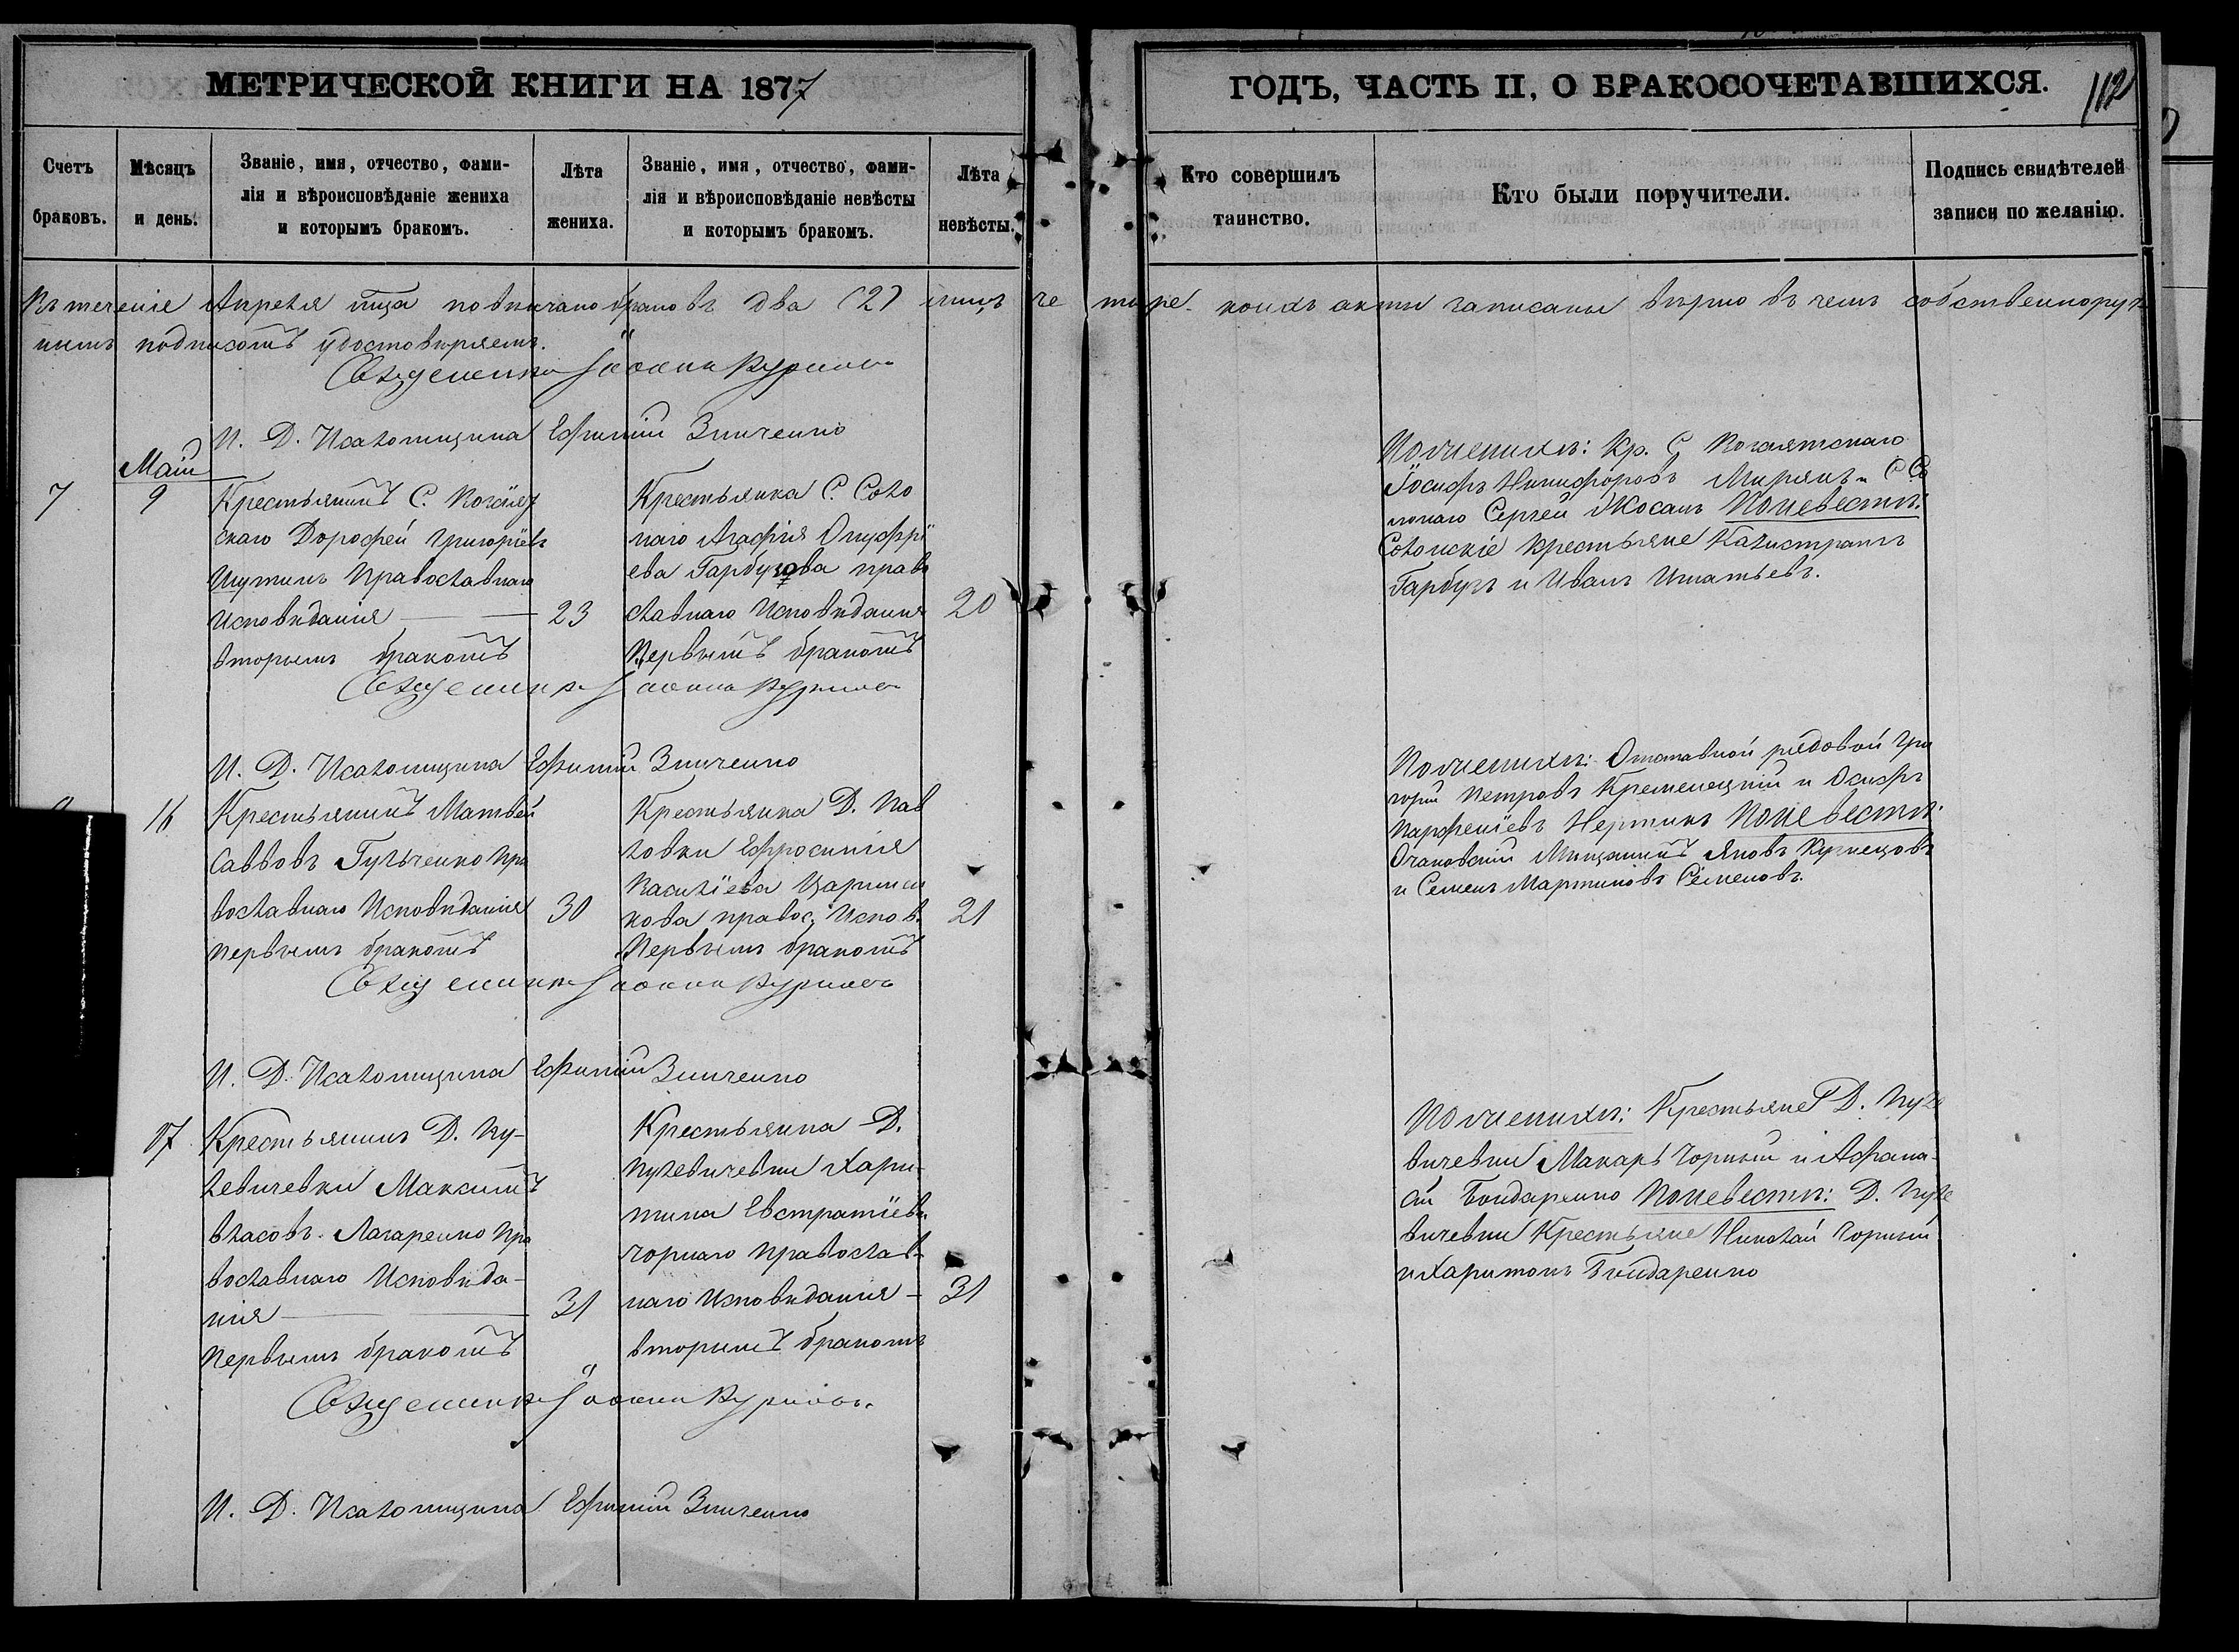 МЕТРИЧЕСКОЙ КНИГИ НА 1877
ГОДЪ, ЧАСТЬ II, О БРАКОСОЧЕТАВШИХСЯ.
112
Счетъ браковъ.
Мѣсяцъ и день.
Званіе, имя, отчество, фами-
лія и вѣроисповѣданіе жениха
и которымъ бракомъ.
Лѣта жениха.
Званіе, имя, отчество, фами-
лія и вѣроисповѣданіе невѣсты
и которымъ бракомъ.
Лѣта невѣсты.
Кто совершилъ таинство.
Кто были поручители.
Подпись свидѣтелей
записи по желанію.
Въ теченіе Апреля мца повѣнчано браковъ два (2) лицъ четыре. коихъ акты записаны вѣрно въ чемъ собственноруч
нымъ подписомъ удостовѣряемъ.
Священникъ Іоаннъ
И. Д. Псаломщика Ефимій Зинченко
Маій
7
9
Крестьянинъ С.
скаго Дорофей Григоріевъ
Шутинъ Православнаго
Исповѣданія
вторымъ бракомъ
23
Крестьянка С. Соло
наго Агафія Онуфрі
ева Гарбузова право
славнаго Исповѣданія
Первымъ бракомъ
20
Поженихѣ: Кр. С
Іосифъ Никифоровъ С Со
лонаго Сергей Жосанъ Поневестѣ:
Солонскіе крестьяне Калистратъ
Гарбузъ и Иванъ Игнатьевъ.
Священникъ Іоаннъ
И. Д. Псаломщика Ефимій Зинченко
16
Крестьянинъ Матвей
Саввовъ Гульченко Пра
вославнаго Исповѣданія
первымъ бракомъ
30
Крестьянка Д. Пав
ловки Ефросинія
Василіева
кова правос. Испов.
Первымъ бракомъ
21
Поженихѣ: Отставной рядовой Гри
горій Петровъ Кременецкій и Осифъ
Парфеніевъ Поневестѣ:
Очаковскій Мѣщанинъ Яковъ Кузнецовъ
и Семенъ Мартиновъ Семеновъ.
Священникъ Іоаннъ
И. Д. Псаломщика Ефимій Зинченко
17
Крестьянинъ Д. Пу-
левичевки Максимъ
Власовъ Лазаренко Пра
вославнаго Исповѣда-
нія
Первымъ бракомъ
31
Крестьянка Д.
Пулевичевки Хари-
тина Евстратіева
Чорнаго Православ-
наго Исповѣданія
вторымъ бракомъ
31
Поженихѣ: Крестьяне Д. Пуле
вичевки Макаръ Чорный и Афана-
сій Бондаренко Поневестѣ: Д. Пуле
вичевки Крестьяне Николай Чорный
и Харитонъ Бондаренко
Священникъ Іоаннъ
И. Д. Псаломщика Ефимій Зинченко